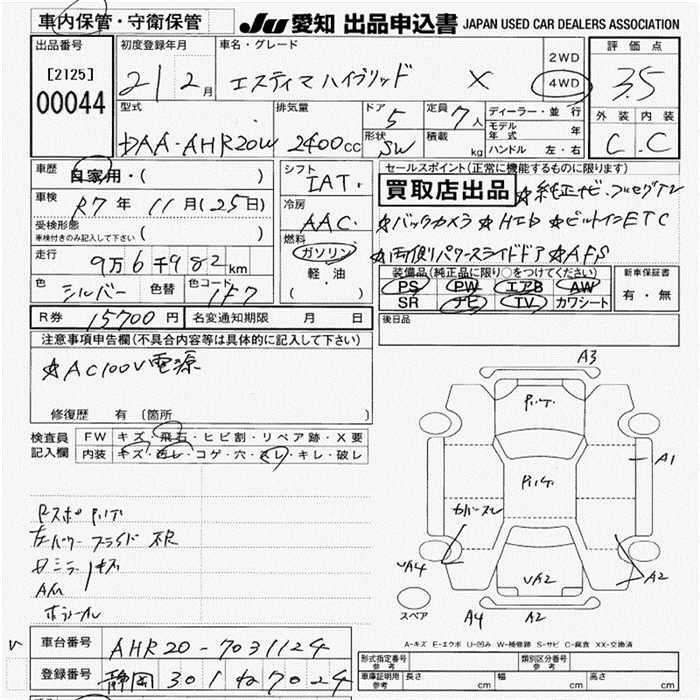 車内保管・守衛保管 JU 愛知 出品申込書 JAPAN USED CAR DEALERS ASSOCIATION
出品番号 [2125] 00044
初度登録年月 21 2月
車名・グレード エスティマ ハイブリッド X
2WD 4WD
評価点 3.5
外装 内装 C C
型式 DAA-AHR20W
排気量 2400cc
ドア 5
形状 SW
定員 7人
積載 kg
ディーラー・並行
モデル年式 年
ハンドル 左・右
車歴 自家用・( )
車検 R7年 11月(25日)
受検形態
車検付きのみ記入して下さい ( )
走行 9万6千982km
色 シルバー 色替 色コード 1F7
シフト IAT
冷房 AAC
燃料 ガソリン
軽・油
( )
セールスポイント(正常に機能するものに限ります)
買取店出品 ☆純正ナビ・フルセグTV
☆バックカメラ ☆HID ☆ビルトインETC
☆両側パワースライドドア ☆AFS
装備品(純正品に限り○をつけてください)
PS PW エアB AW
SR ナビ TV カワシート
新車保証書
有・無
R券 15700円 名変通知期限 月 日
後日品
注意事項申告欄(不具合内容等は具体的に記入して下さい)
☆AC100V電源
修復歴 有 〔箇所
検査員記入欄 FW キズ・飛石・ヒビ割・リペア跡・X要
内装 キズ・汚レ・コゲ・穴・スレ・キレ・破レ
A3
A1
UA4
UA2
A2
A4 A2
スペア
A-キズ E-エクボ U-凹み W-補修跡 S-サビ C-腐食 XX-交換済
車台番号 AHR20-7031124
登録番号 静岡 301 ね 7024
形式指定番号 参考
類別区分番号 参考
車庫証明用 参考 長さ cm 幅 cm 高さ cm